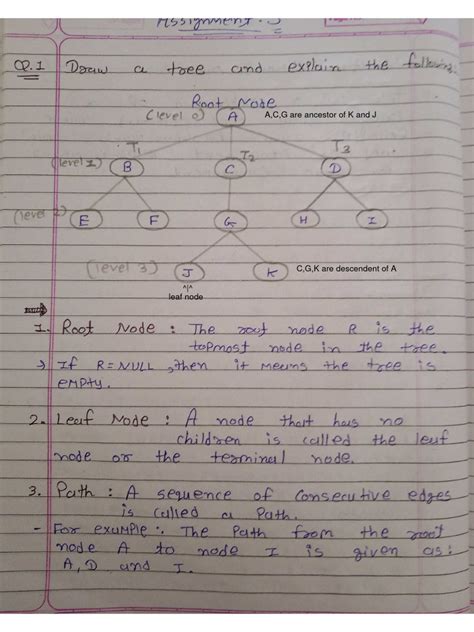 Assignment : 3
Q.1 Draw a tree and explain the following
Root Node
(level 0) A A,C,G are ancestor of K and J
T1 T2 T3
(level 1) B C D
(level 2) E F G H I
(level 3) J K C,G,K are descendent of A
^|^
leaf node
1. Root Node : The root node R is the
topmost node in the tree.
→ If R=NULL, then it means the tree is
empty.
2. Leaf Node : A node that has no
children is called the leaf
node or the terminal node.
3. Path : A sequence of consecutive edges
is called a Path.
- For example :. The Path from the root
node A to node I is given as:
A, D and I.